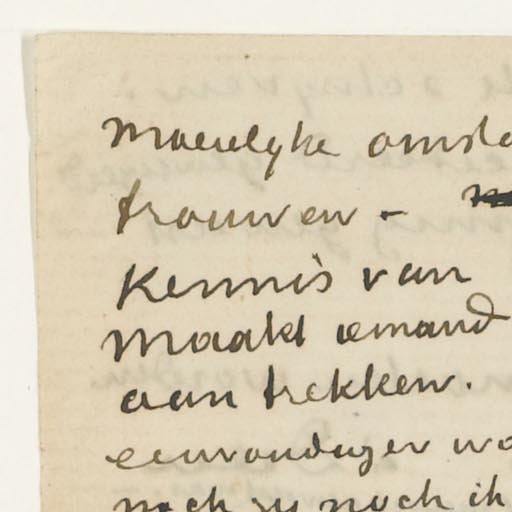 moeielyke omsta
trouwen -
Kennis van
maakt iemand
aan trekken.
eenvoudiger wo
noch zy noch ik